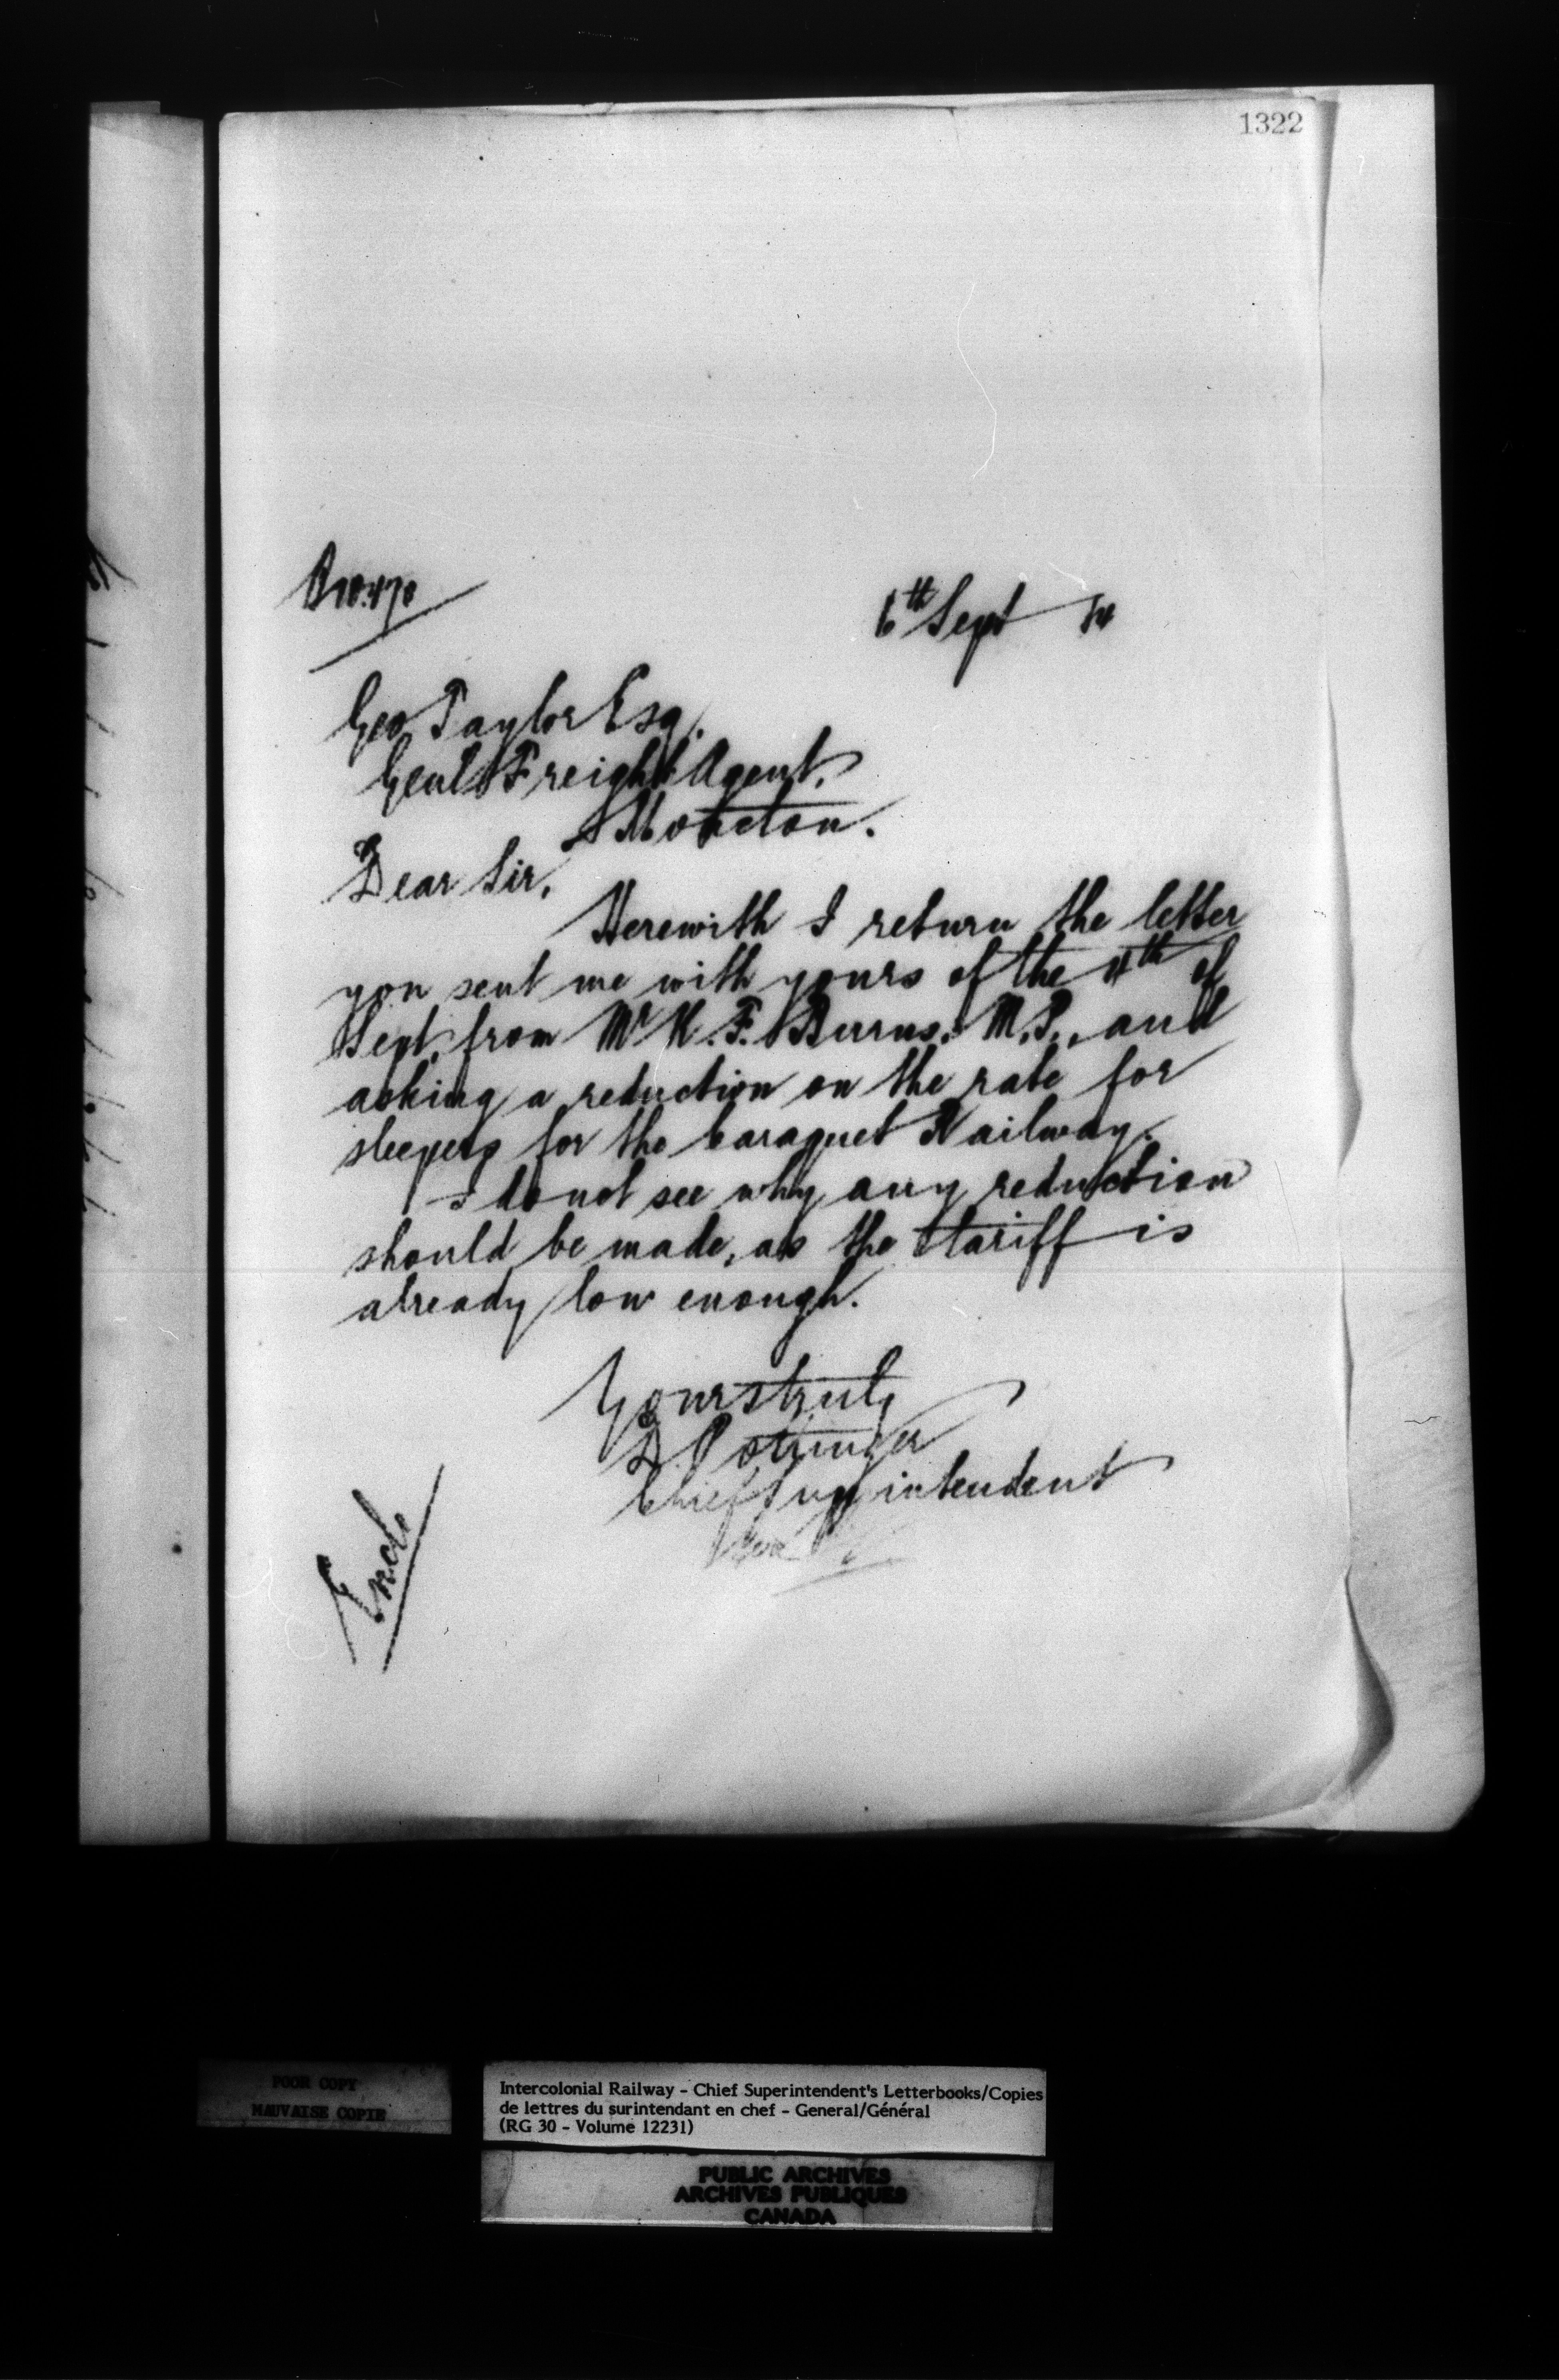 1322
6th Sept
Geo Taylor Esq.
Genl Freight Agent,
Moncton.
Dear Sir,
Herewith I return the letter
you sent me with yours of the 4th of
Sept. from Mr K. F. Burns, M.P., and
asking a reduction on the rate for
sleepers for the Caraquet Railway.
I do not see why any reduction
should be made, as the tariff is
already low enough.
Yours truly
D Pottinger
Chief Superintendent
Encl.
POOR COPY
MAUVAISE COPIE
Intercolonial Railway - Chief Superintendent's Letterbooks/Copies
de lettres du surintendant en chef - General/Général
(RG 30 - Volume 12231)
PUBLIC ARCHIVES
ARCHIVES PUBLIQUES
CANADA